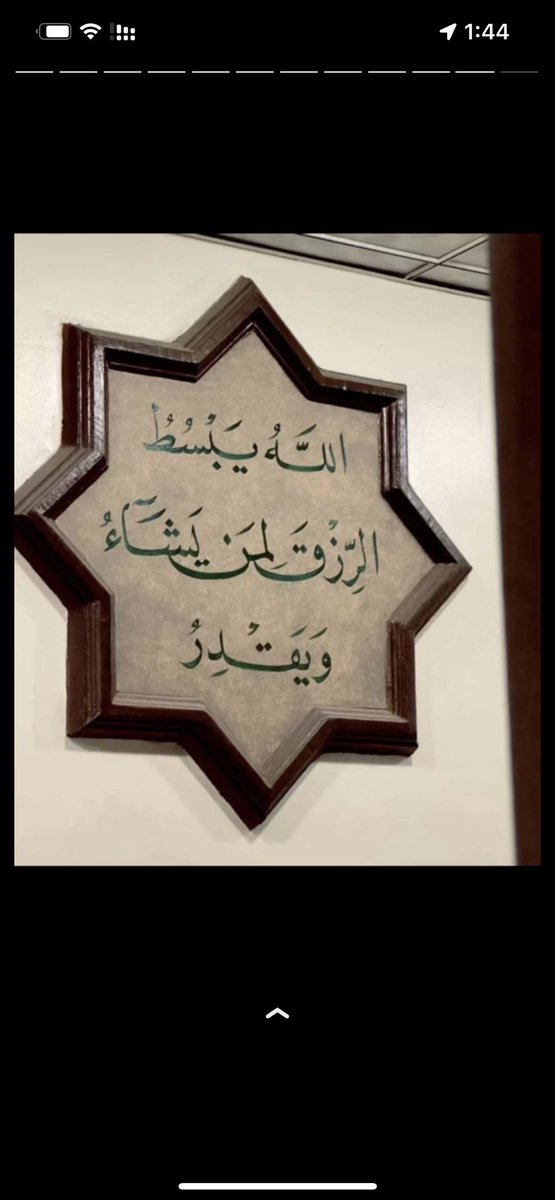 1:44
اللَّهُ يَبْسُطُ
الرِّزْقَ لِمَن يَشَآءُ
وَيَقْدِرُ